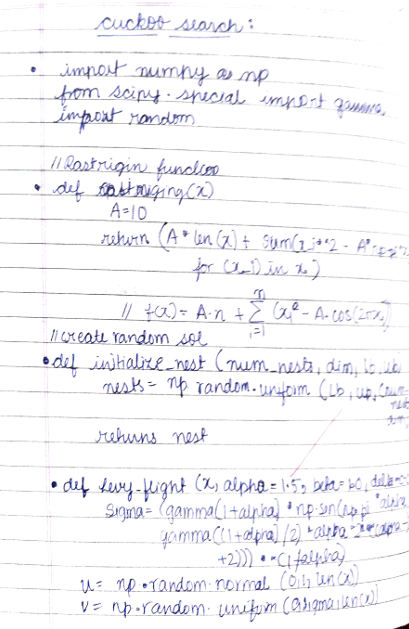 cuckoo search:
• import numpy as np
from scipy. special import gamma,
import random
// Rastrigin function
• def rastriging(x)
A=10
return (A * len(x) + sum(x_i**2 - A*
for (x_i) in x)
// f(x) = A·n + n∑i=1 (xi² - A·cos(2πxi)
// create random sol
• def initialize_nest (num_nests, dim, lb, ub
nests = np random.uniform (Lb, up, (num-
nests
returns nest
• def levy-flight (x, alpha = 1.5, beta = 1.0, delta =
Sigma = (gamma(1+alpha) * np.sin(np.pi * alpha
gamma((1+alpha)/2) * alpha * 2**(alpha-
+2))) ** (1/alpha)
u = np.random.normal (0,1, len(x)
v = np.random. uniform (0,sigma, len(x)